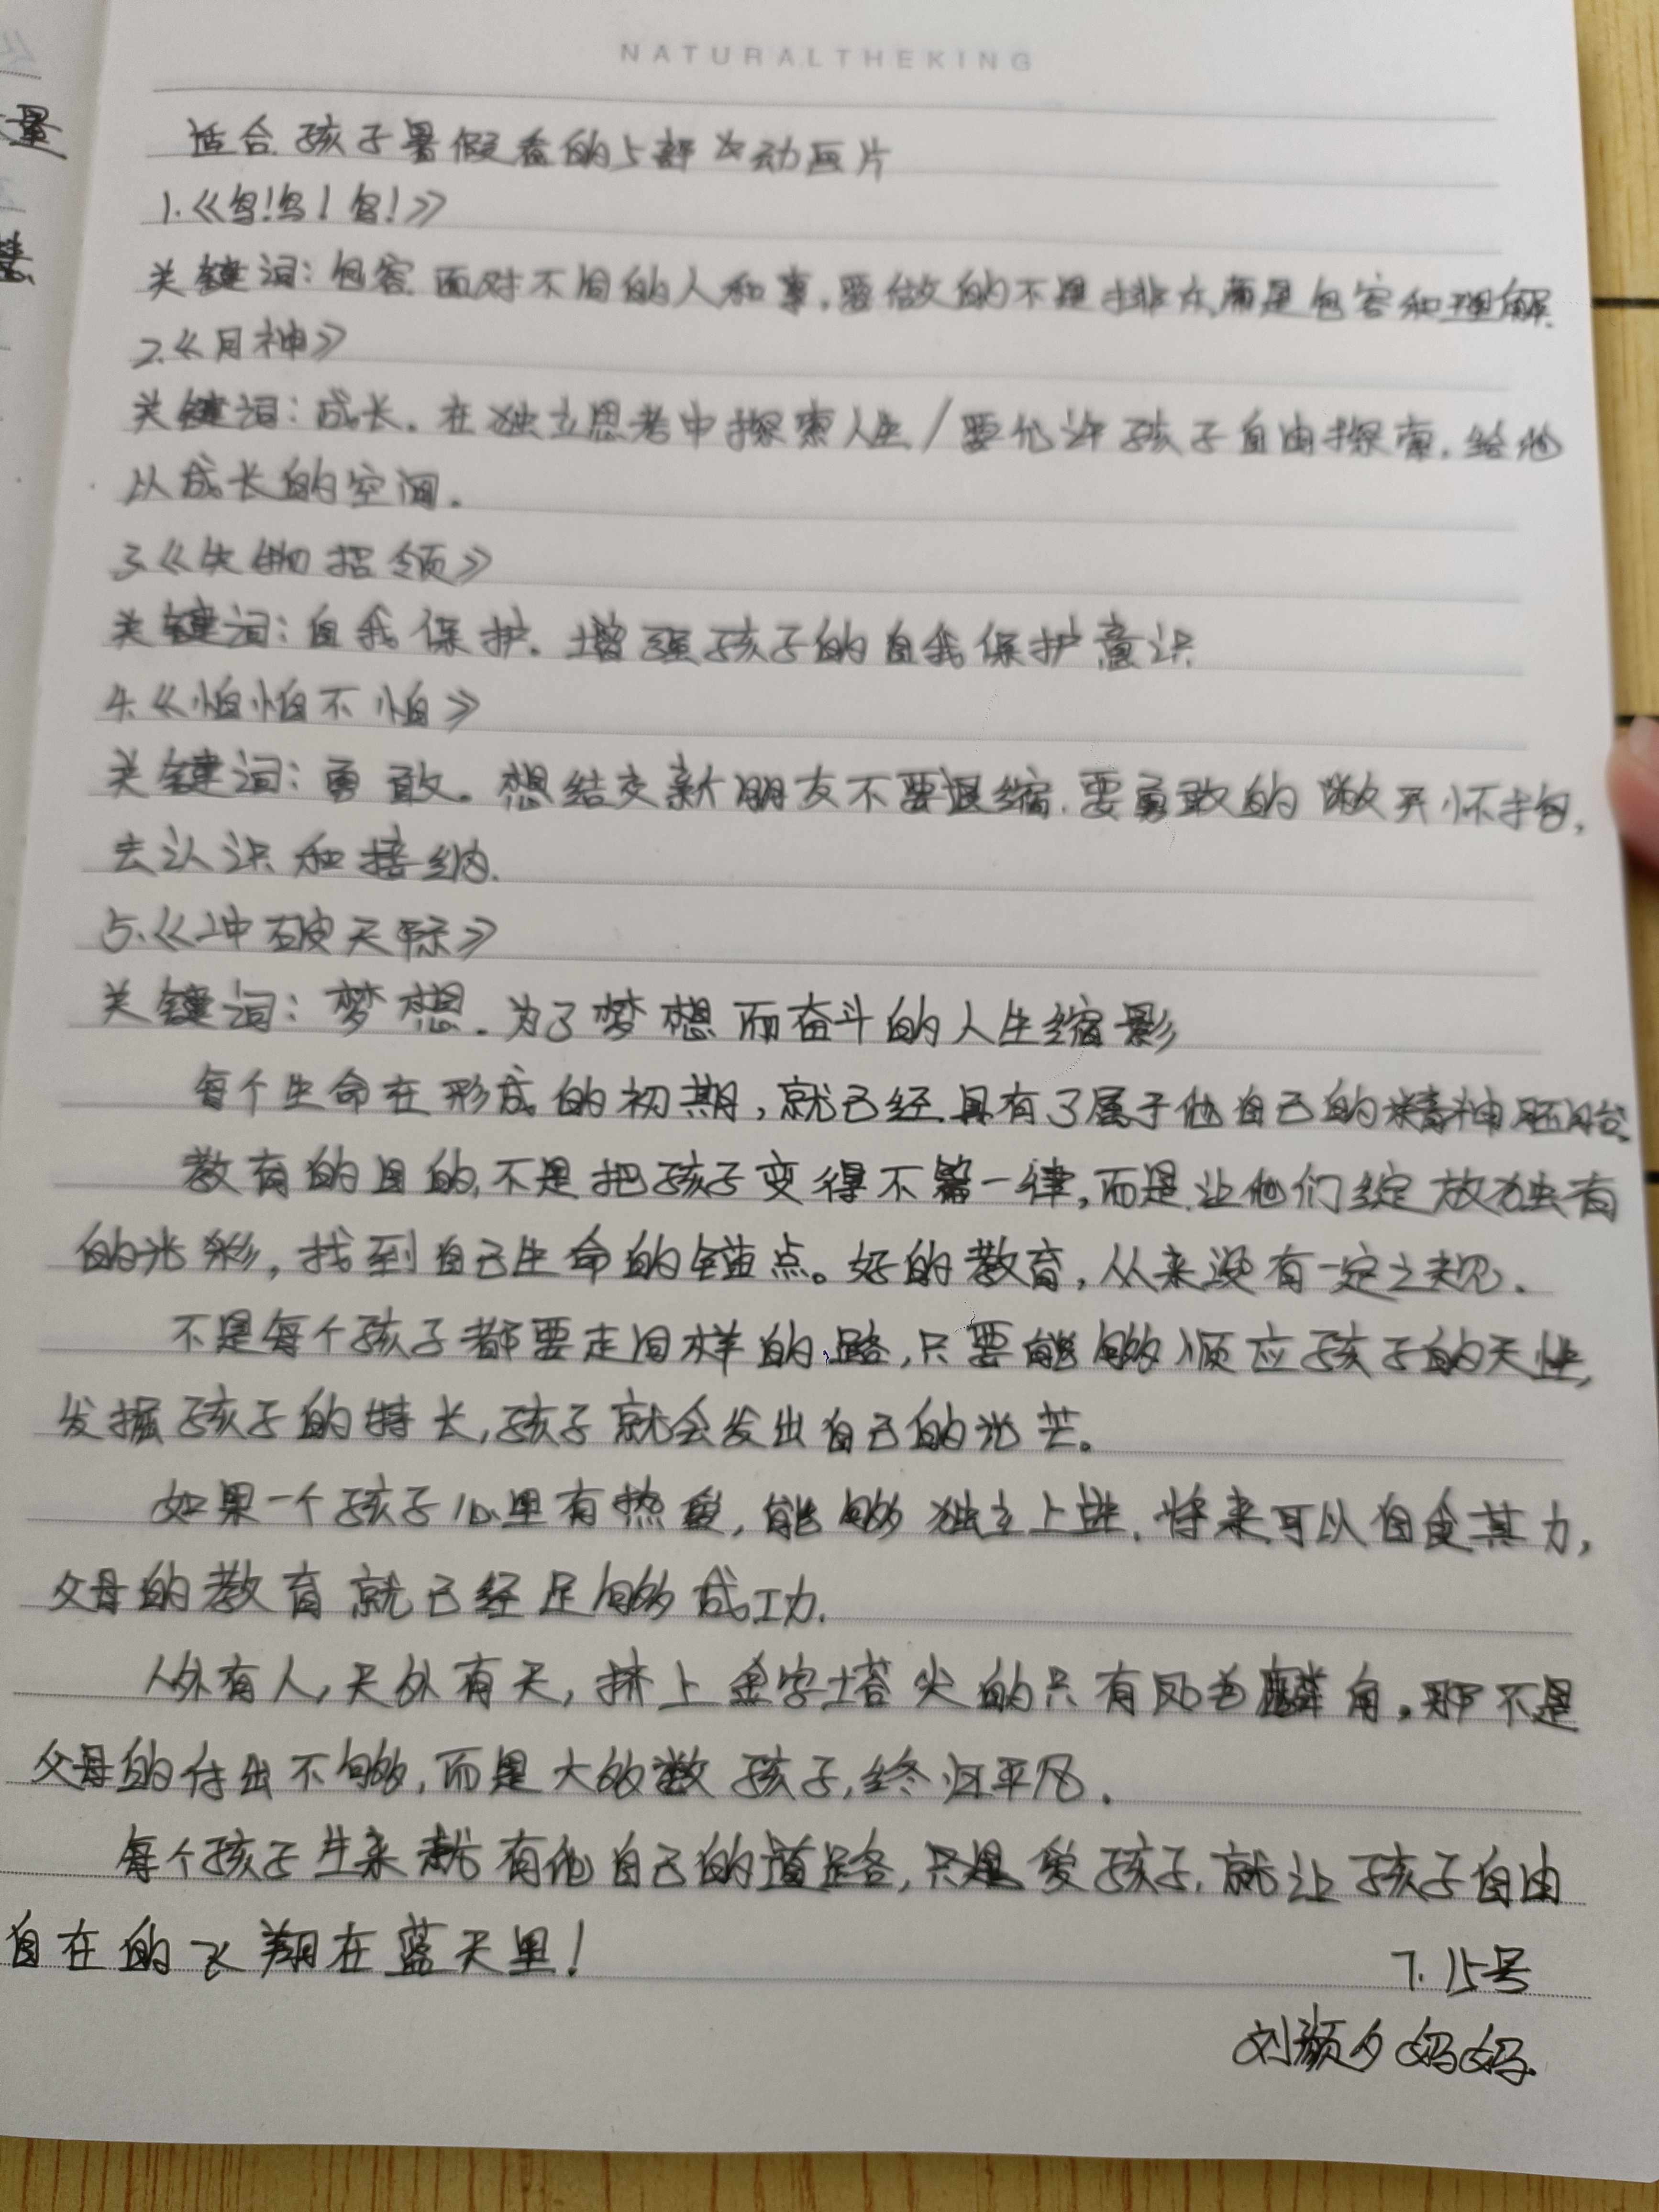 NATURALTHEKING
适合孩子暑假看的5部 动画片
1.《鸟!鸟!鸟!》
关键词：包容 面对不同的人和事,要做的不是排斥,而是包容和理解.
2.《月神》
关键词：成长.在独立思考中探索人生/要允许孩子自由探索,给他
以成长的空间.
3.《失物招领》
关键词：自我保护。增强孩子的自我保护意识
4.《怕怕不怕》
关键词：勇敢。想结交新朋友不要退缩,要勇敢的敞开怀抱,
去认识和接纳.
5.《冲破天际》
关键词：梦想.为了梦想而奋斗的人生缩影
每个生命在形成的初期,就已经具有了属于他自己的精神胚胎.
教育的目的,不是把孩子变得千篇一律,而是让他们绽放独有
的光彩,找到自己生命的锚点。好的教育,从来没有一定之规.
不是每个孩子都要走同样的路,只要能够顺应孩子的天性,
发掘孩子的特长,孩子就会发出自己的光芒。
如果一个孩子心里有热爱,能够独立上进,将来可以自食其力,
父母的教育就已经足够成功.
人外有人,天外有天,挤上金字塔尖的只有凤毛麟角.那不是
父母的付出不够,而是大多数孩子,终归平凡.
每个孩子生来就有他自己的道路,只是爱孩子,就让孩子自由
自在的飞翔在蓝天里!
7.15号
刘颜夕妈妈.
量